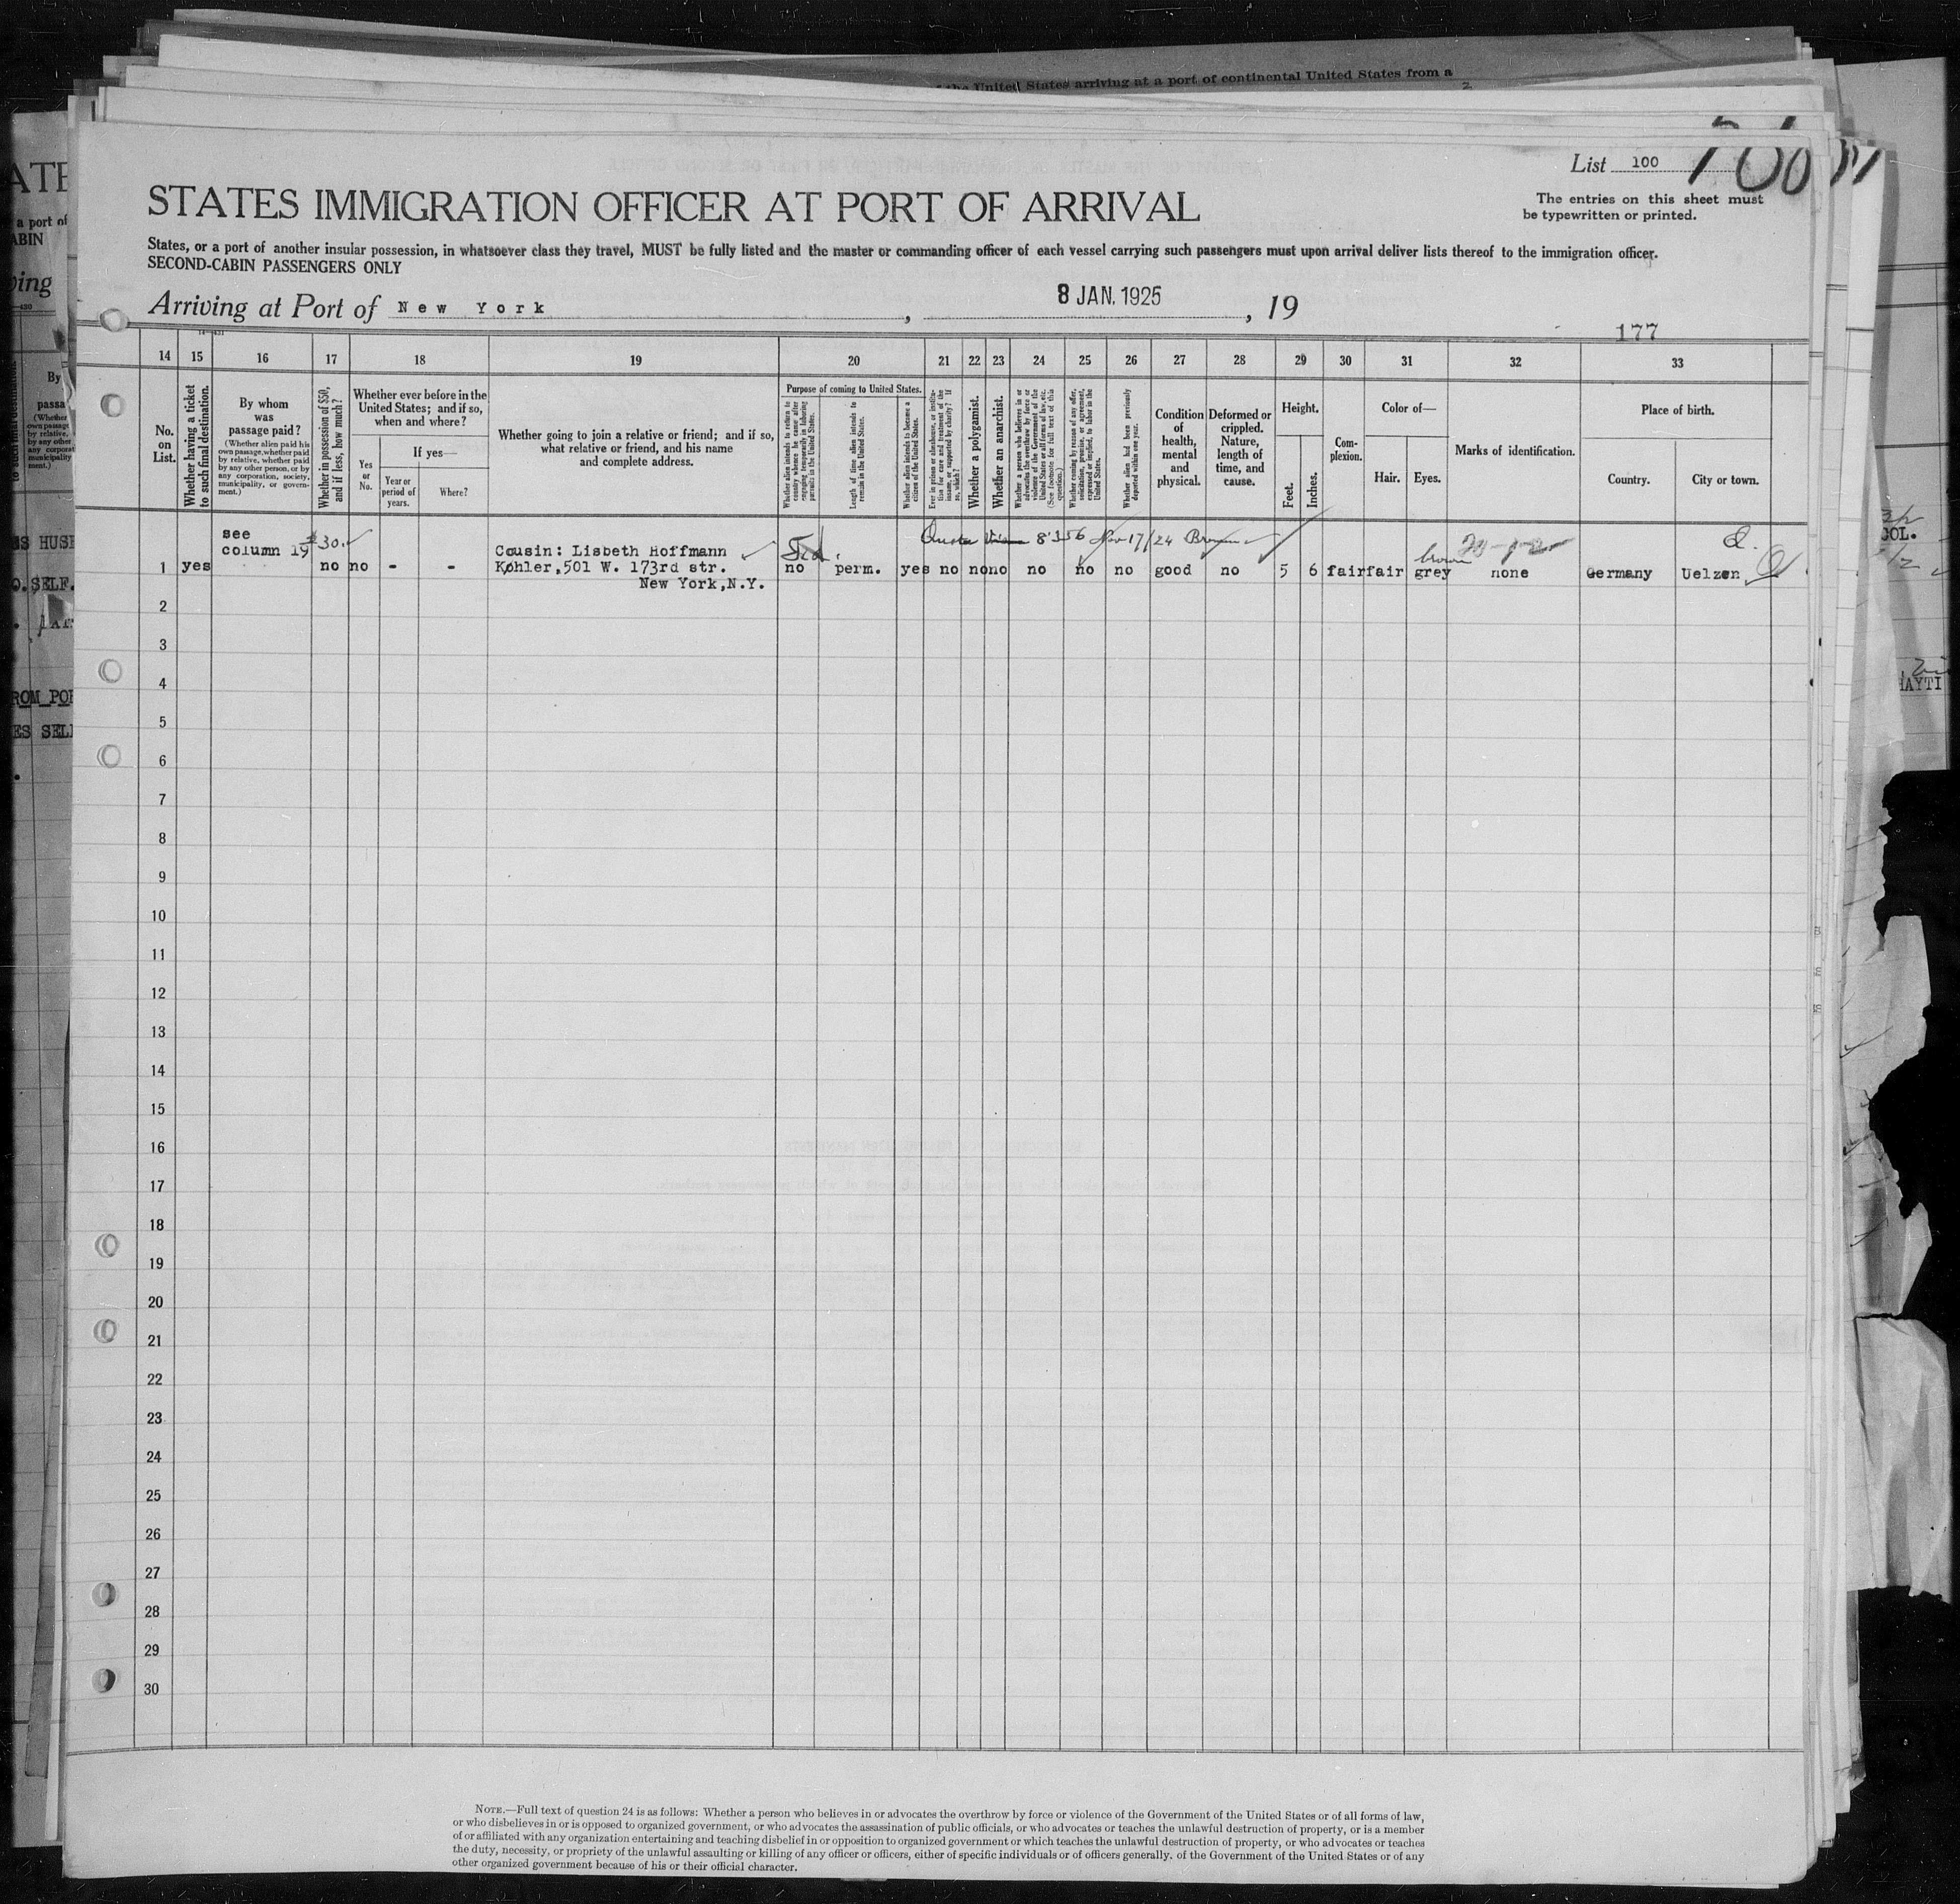 the United States arriving at a port of continental United States from a
List 100
100
STATES IMMIGRATION OFFICER AT PORT OF ARRIVAL
The entries on this sheet must
be typewritten or printed.
States, or a port of another insular possession, in whatsoever class they travel, MUST be fully listed and the master or commanding officer of each vessel carrying such passengers must upon arrival deliver lists thereof to the immigration officer.
SECOND-CABIN PASSENGERS ONLY
Arriving at Port of New York, 8 JAN. 1925, 19
177
14 15 16 17 18 19 20 21 22 23 24 25 26 27 28 29 30 31 32 33
No. on List.
Whether having a ticket to such final destination.
By whom was passage paid?
(Whether alien paid his own passage, whether paid by relative, whether paid by any other person, or by any corporation, society, municipality, or government.)
Whether in possession of $50, and if less, how much?
Whether ever before in the United States; and if so, when and where?
Yes or No.
If yes—
Year or period of years.
Where?
Whether going to join a relative or friend; and if so, what relative or friend, and his name and complete address.
Purpose of coming to United States.
Whether alien intends to return to country whence he came after engaging temporarily in laboring pursuits in the United States.
Length of time alien intends to remain in the United States.
Whether alien intends to become a citizen of the United States.
Ever in prison or almshouse, or institution for care and treatment of the insane, or supported by charity? If so, which?
Whether a polygamist.
Whether an anarchist.
Whether a person who believes in or advocates the overthrow by force or violence of the Government of the United States or all forms of law, etc. (See footnote for full text of this question.)
Whether coming by reason of any offer, solicitation, promise, or agreement, expressed or implied, to labor in the United States.
Whether alien had been previously deported within one year.
Condition of health, mental and physical.
Deformed or crippled. Nature, length of time, and cause.
Height.
Feet.
Inches.
Complexion.
Color of—
Hair.
Eyes.
Marks of identification.
Place of birth.
Country.
City or town.
see
column 19 $30.
8356 Nov 17/24
brown
Cousin: Lisbeth Hoffmann
1 yes no no - - Köhler, 501 W. 173rd str. no perm. yes no no no no no no good no 5 6 fair fair grey none Germany Uelzen
New York, N.Y.
2
3
4
5
6
7
8
9
10
11
12
13
14
15
16
17
18
19
20
21
22
23
24
25
26
27
28
29
30
NOTE.—Full text of question 24 is as follows: Whether a person who believes in or advocates the overthrow by force or violence of the Government of the United States or of all forms of law,
or who disbelieves in or is opposed to organized government, or who advocates the assassination of public officials, or who advocates or teaches the unlawful destruction of property, or is a member
of or affiliated with any organization entertaining and teaching disbelief in or opposition to organized government or which teaches the unlawful destruction of property, or who advocates or teaches
the duty, necessity, or propriety of the unlawful assaulting or killing of any officer or officers, either of specific individuals or of officers generally, of the Government of the United States or of any
other organized government because of his or their official character.